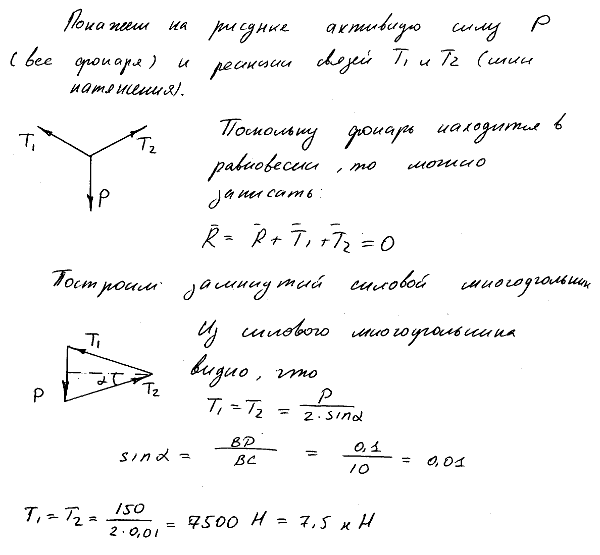 Покажем на рисунке активную силу P
(вес фонаря) и реакции связей T₁ и T₂ (силы
натяжения).
T₁ T₂
P
Поскольку фонарь находится в
равновесии, то можно
записать:
R̄ = R̄ + T̄₁ + T̄₂ = 0
Построим замкнутый силовой многоугольник
Из силового многоугольника
видно, что
T₁
P α T₂
T₁ = T₂ = P / (2·sinα)
sinα = BD / BC = 0,1 / 10 = 0,01
T₁ = T₂ = 150 / (2·0,01) = 7500 Н = 7,5 кН